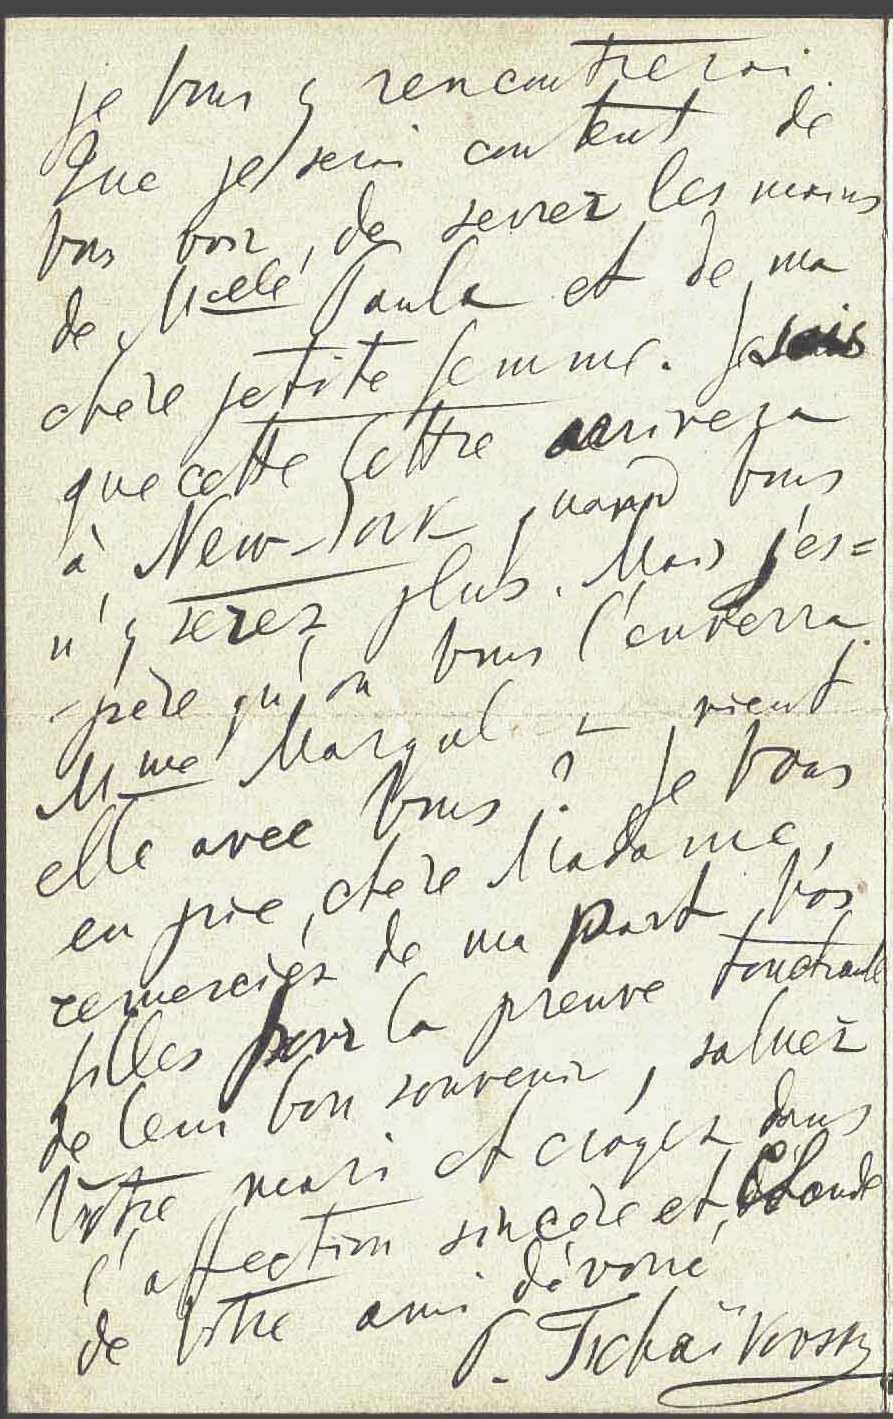 je vous y rencontrerai.
Que je serai content de
vous voir, de serrez les mains
de Mselle Paula et de ma
chère petite femme. Je sais
que cette lettre arrivera
à New-York quand vous
n'y serez plus. Mais j'es=
-père qu'on vous l'enverra.
Mme vient
elle avec vous? Je vous
en prie, chère Madame,
remerciez de ma part vos
filles pour la preuve touchante
de leur bon souvenir, saluez
Votre mari et croyez dans
l'affection sincère et
de Votre ami dévoué
P. Tschaïkovsky